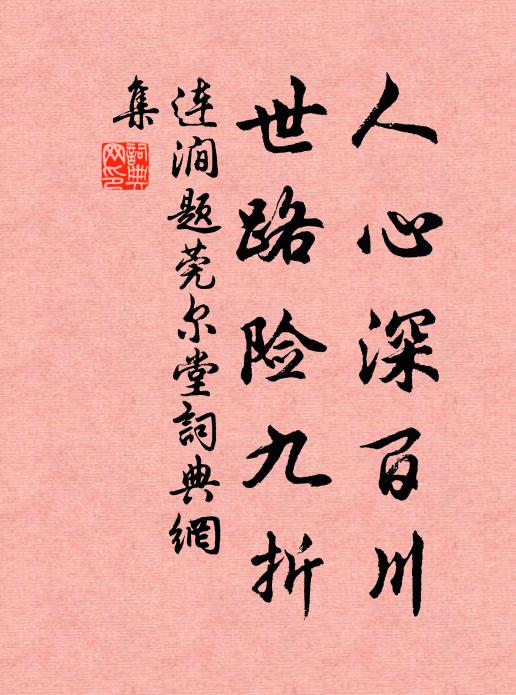 人心深百川
世路险九折
连涧题莞尔堂詞典網
集
詞典
网印